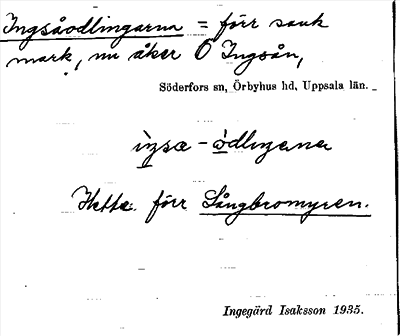 Ingsåodlingarna = förr sank
mark, nu åker Ö Ingsån,
Söderfors sn, Örbyhus hd, Uppsala län.
Hette förr Långbromyren.
Ingegärd Isaksson 1935.